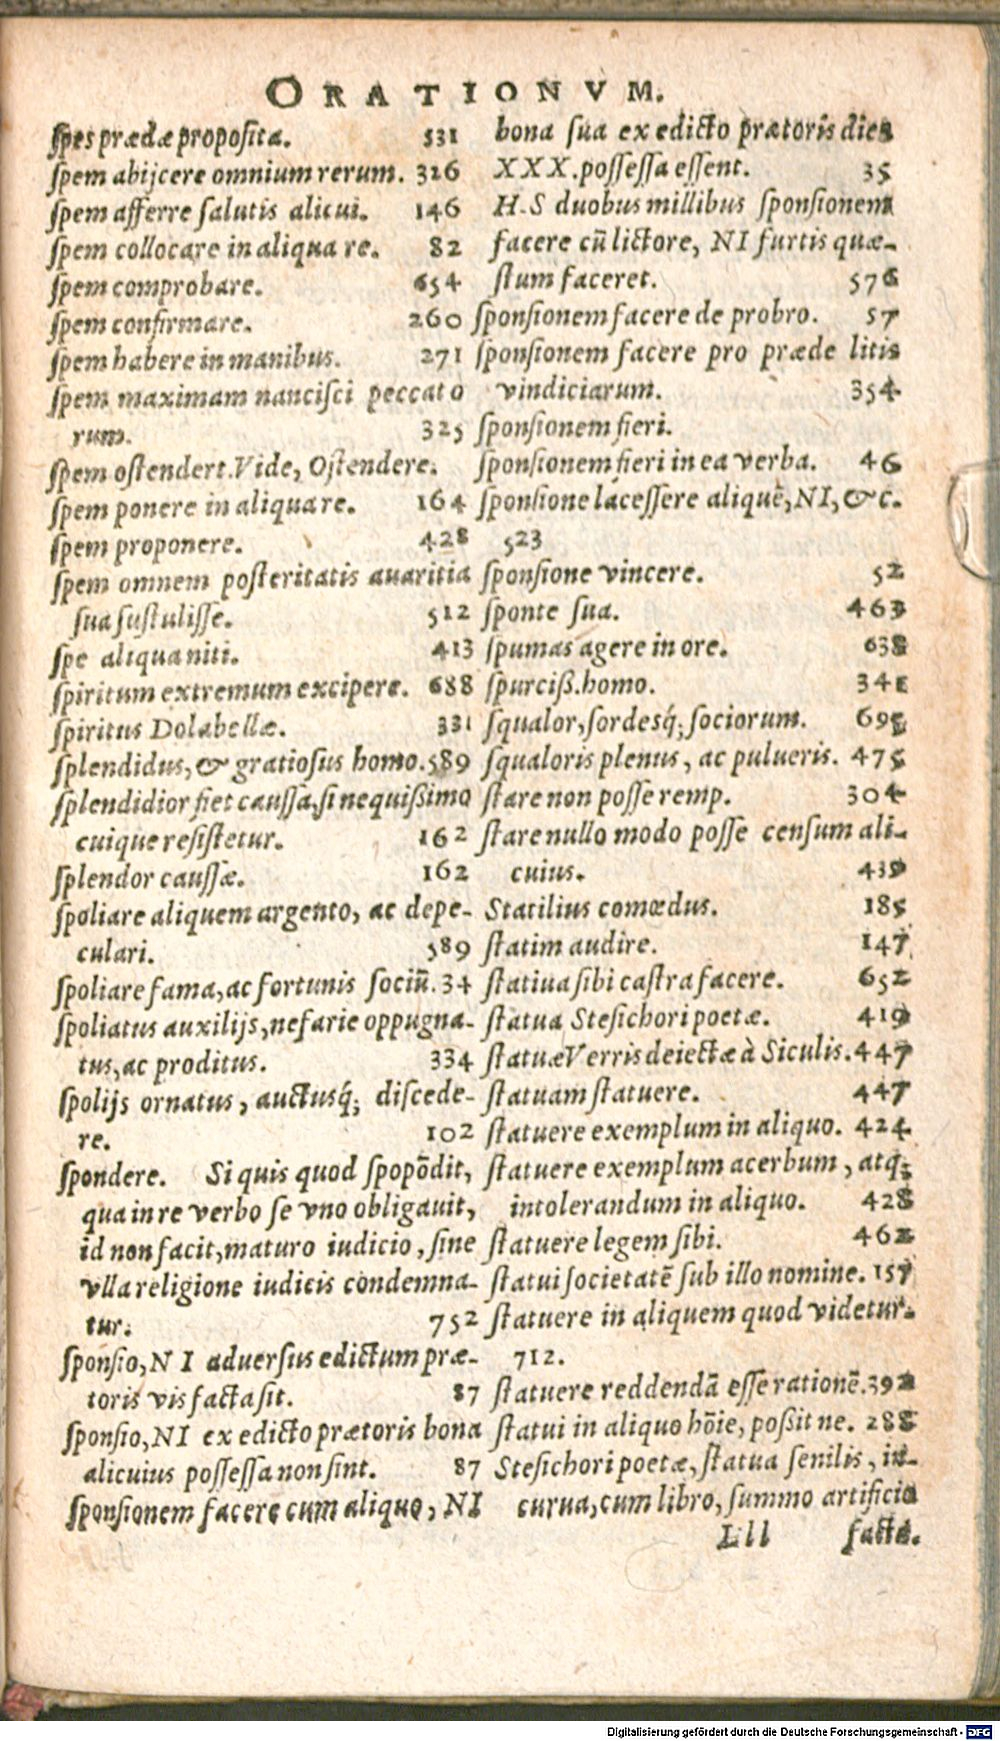 ORATIONVM.
spes prædæ proposita. 531
spem abijcere omnium rerum. 316
spem afferre salutis alicui. 146
spem collocare in aliqua re. 82
spem comprobare. 654
spem confirmare. 260
spem habere in manibus. 271
spem maximam nancisci peccato
rum. 325
spem ostendert. Vide, Ostendere.
spem ponere in aliqua re. 164
spem proponere. 428
spem omnem posteritatis auaritia
sua sustulisse. 512
spe aliqua niti. 413
spiritum extremum excipere. 688
spiritus Dolabellæ. 331
splendidus, & gratiosus homo. 589
splendidior fiet caussa, si nequißimo
cuique resistetur. 162
splendor caussæ. 162
spoliare aliquem argento, ac depe-
culari. 589
spoliare fama, ac fortunis sociũ. 34
spoliatus auxilijs, nefarie oppugna-
tus, ac proditus. 334
spolijs ornatus, auctusq́; discede-
re. 102
spondere. Si quis quod spopõdit,
qua in re verbo se vno obligauit,
id non facit, maturo iudicio, sine
vlla religione iudicis condemna-
tur. 752
sponsio, NI aduersus edictum præ-
toris vis facta sit. 87
sponsio, NI ex edicto prætoris bona
alicuius possessa non sint. 87
sponsionem facere cum aliquo, NI
bona sua ex edicto prætoris dies
XXX. possessa essent. 35
H-S duobus millibus sponsionem
facere cũ lictore, NI furtis quæ-
stum faceret. 576
sponsionem facere de probro. 57
sponsionem facere pro præde litis
vindiciarum. 354
sponsionem fieri.
sponsionem fieri in ea verba. 46
sponsione lacessere aliquẽ, NI, &c.
523
sponsione vincere. 52
sponte sua. 463
spumas agere in ore. 638
spurciß. homo. 341
squalor, sordesq́; sociorum. 695
squaloris plenus, ac pulueris. 475
stare non posse remp. 304
stare nullo modo posse censum ali-
cuius. 439
Statilius comœdus. 185
statim audire. 147
statiua sibi castra facere. 652
statua Stesichori poetæ. 419
statuæ Verris deiectæ à Siculis. 447
statuam statuere. 447
statuere exemplum in aliquo. 424
statuere exemplum acerbum, atq;
intolerandum in aliquo. 428
statuere legem sibi. 462
statui societatẽ sub illo nomine. 157
statuere in aliquem quod videtur.
712.
statuere reddendã esse rationẽ. 392
statui in aliquo hõie, poßit ne. 288
Stesichori poetæ, statua senilis, in-
curua, cum libro, summo artificio
Lll facta.
Digitalisierung gefördert durch die Deutsche Forschungsgemeinschaft - DFG